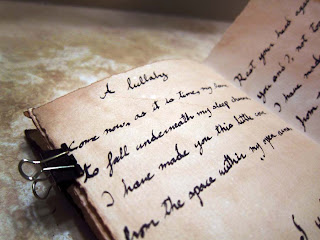 A lullaby
Come now, as it is time, my love
to fall underneath my sleep
I have made you this little
from the space within my open
Rest your head
you and I, not
I have made
from